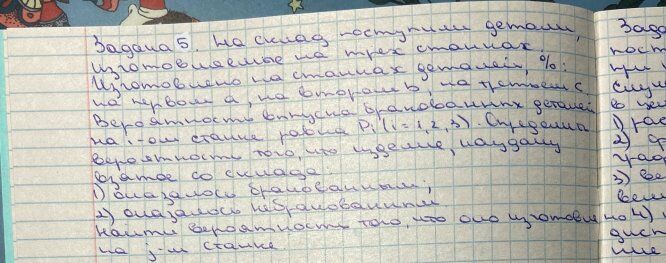 Задача 5. На склад поступили детали,
изготовляемые на трех станках.
Изготовлено на станках деталей, %:
на первом a, на втором b, на третьем c.
Вероятность выпуска бракованных деталей
на i-ом станке равна Pi (i = 1, 2, 3). Определить
вероятность того, что изделие, наудачу
взятое со склада:
1) оказалось бракованным;
2) оказалось небракованным
Найти вероятность того, что оно изготовлено
на j-м станке
Зада
пост
при
случ
в
1) рас
2)
3) ве
4)
дист